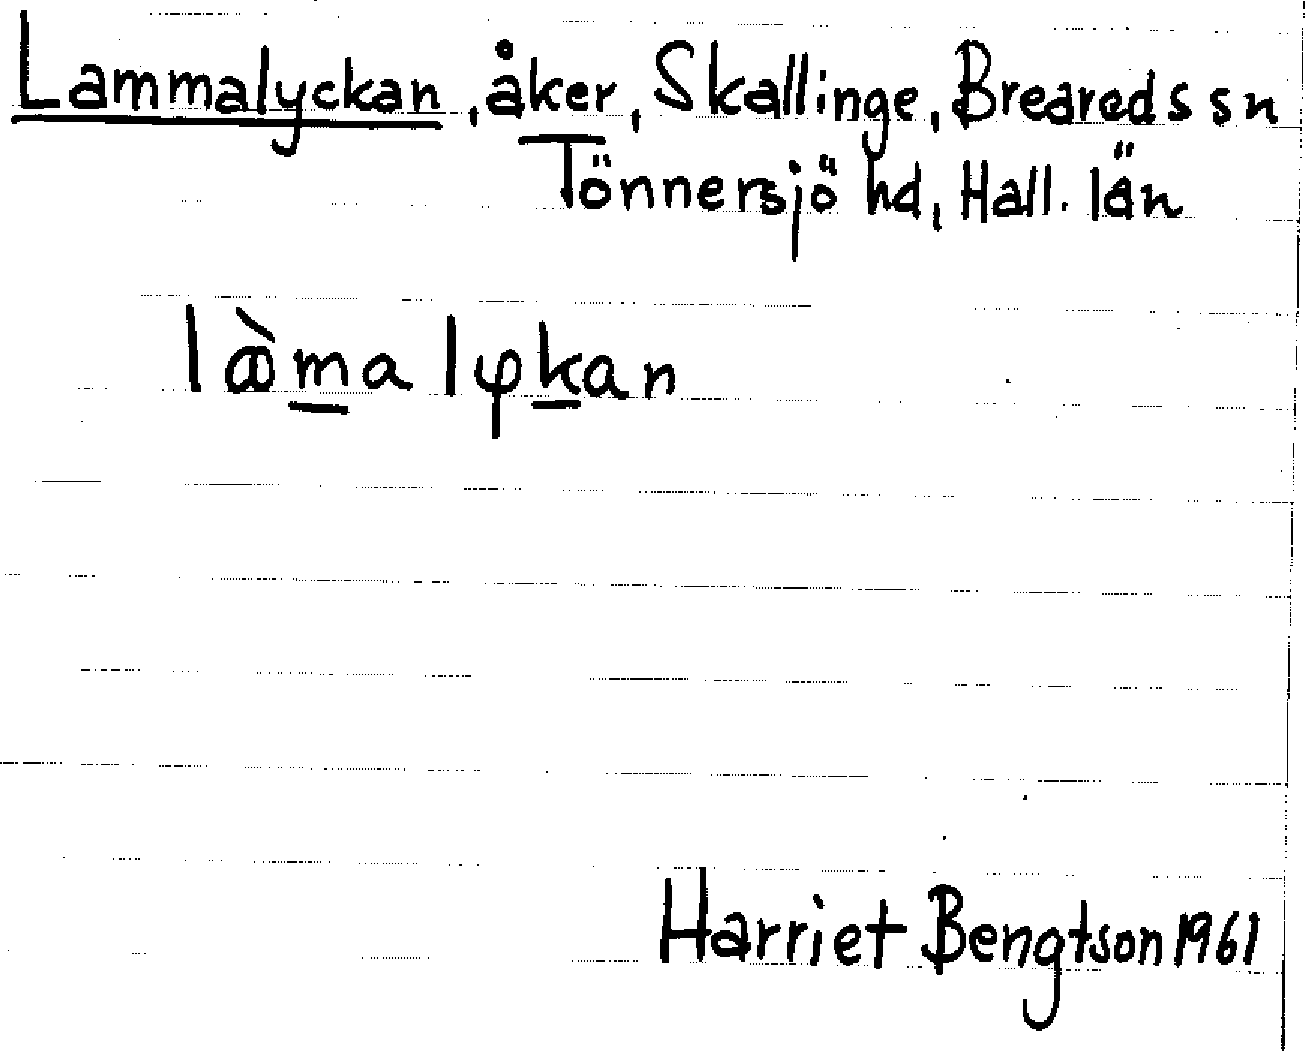 Lammalyckan, åker, Skallinge, Breareds sn
Tönnersjö hd, Hall. län
lꜵ̀m̲a lφk̲an
Harriet Bengtson 1961